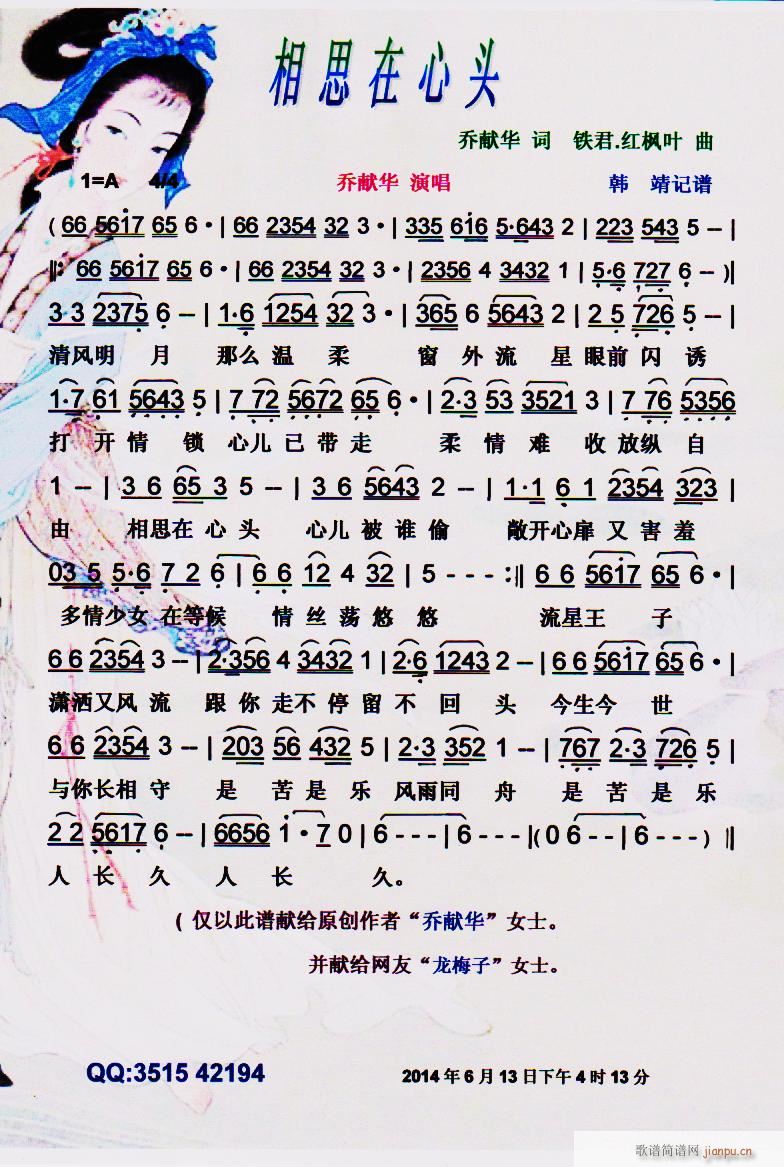 相思在心头
乔献华 词 铁君.红枫叶 曲
1=A 4/4 乔献华 演唱 韩 靖记谱
( 66 5617 65 6 · | 66 2354 32 3 · | 335 616 5·643 2 | 223 543 5 -- |
‖: 66 5617 65 6 · | 66 2354 32 3 · | 2356 4 3432 1 | 5·6 727 6 -- )|
3 3 2375 6 -- | 1·6 1254 32 3 · | 365 6 5643 2 | 2 5 726 5 -- |
清风明 月 那么 温 柔 窗 外 流 星 眼前 闪 诱
1·7 61 5643 5 | 7 72 5672 65 6 · | 2·3 53 3521 3 | 7 76 5356
打 开 情 锁 心儿 已 带 走 柔 情 难 收 放纵 自
1 -- | 3 6 65 3 5 -- | 3 6 5643 2 -- | 1·1 6 1 2354 323 |
由 相思在 心 头 心儿 被 谁 偷 敞开心扉 又 害 羞
03 5 5·6 7 2 6 | 6 6 12 4 32 | 5 - - - :‖ 6 6 5617 65 6 · |
多情少女 在等候 情 丝 荡 悠 悠 流星王 子
6 6 2354 3 -- | 2·356 4 3432 1 | 2·6 1243 2 -- | 6 6 5617 65 6 · |
潇洒又风 流 跟 你 走不 停 留 不 回 头 今生今 世
6 6 2354 3 -- | 203 56 432 5 | 2·3 352 1 -- | 767 2·3 726 5 |
与你长相 守 是 苦 是 乐 风雨同 舟 是 苦 是 乐
2 2 5617 6 -- | 6656 1 · 7 0 | 6 - - - | 6 - - - |( 0 6 - - | 6 - - - ) ‖
人 长 久 人 长 久。
( 仅以此谱献给原创作者“乔献华”女士。
并献给网友“龙梅子”女士。
QQ:3515 42194 2014 年 6 月 13 日下午 4 时 13 分
歌谱简谱网 jianpu.cn